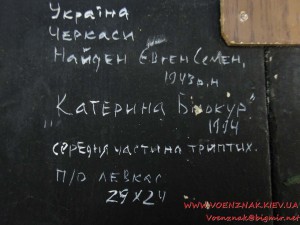 Україна
Черкаси
Найден Євген Семен.
1943 р.н
"Катерина Білокур"
1994
середня частина триптих.
п/о левкас
29х24
WWW.VOENZNAK.KIEV.UA
Voenznak@bigmir.net